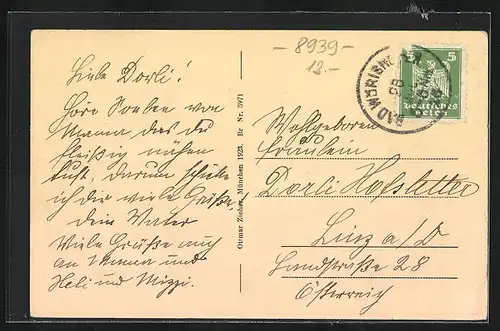 - 8939 -
12.-
Liebe Dorli!
Höre soeben von
Mamma das du
fleißig nähen
tust, darum schicke
ich dir viele Grüße,
dein Vater
Viele Grüße auch
an Mama und
Heli und Mizzi.
Ottmar Zieher, München 1923. Br Nr. 3971
BAD WÖRISH
5
Deutsches
Reich
Wohlgeboren
Fräulein
Dorli Hofstetter
Linz a/D
Landstraße 28
Österreich